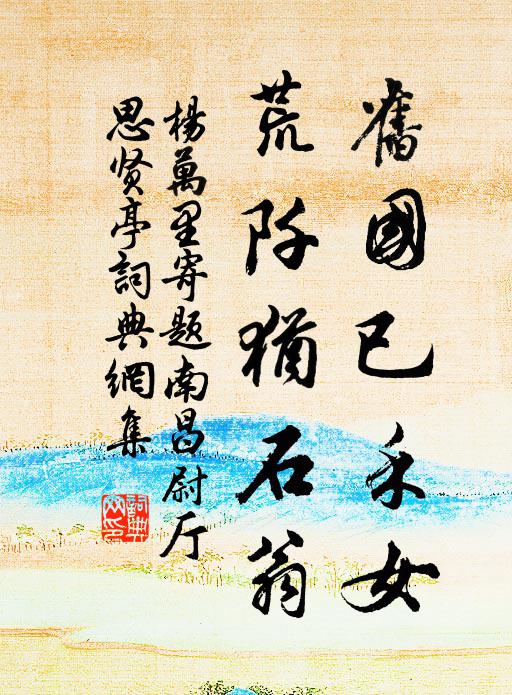 舊國已禾女
荒阡猶石翁
楊萬里寄題南昌尉厅
思贤亭詞典網集
詞典